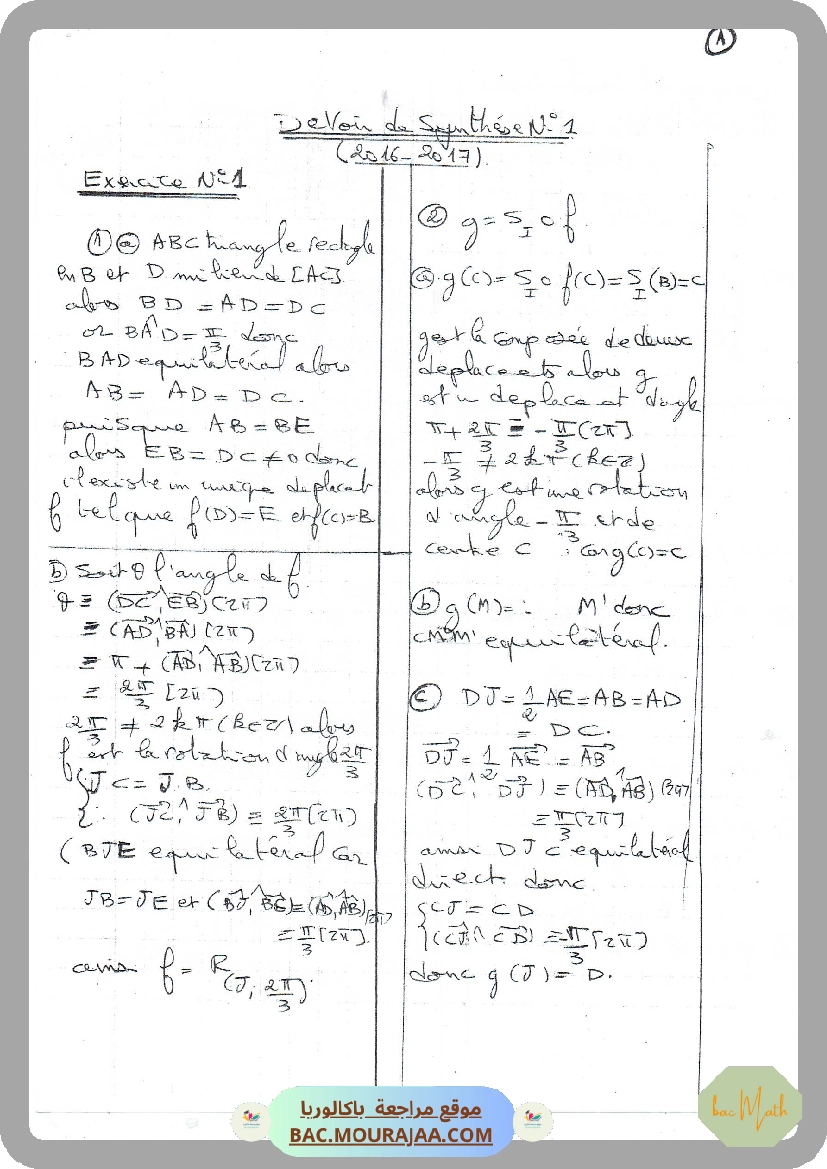 1
Devoir de Synthése N°1
(2016-2017).
Exercice N°1
① ⓐ ABC triangle rectgle
en B et D milieu de [AC].
alors BD = AD = DC
or BÂD = π/3 donc
BAD equilatéral alors
AB = AD = DC.
puisque AB = BE
alors EB = DC ≠ 0 donc
il existe un unique deplacet
f tel que f(D)=E et f(C)=B
b) Soit θ l'angle de f.
θ ≡ (DC→ ^ EB→) [2π]
≡ (AD→ ^ BA→) [2π]
≡ π + (AD→ ^ AB→) [2π]
≡ 2π/3 [2π]
2π/3 ≠ 2kπ (k∈Z) alors
f est la rotation d'angle 2π/3
{ JC = JB.
{ (JC→ ^ JB→) ≡ 2π/3 [2π]
( BJE equilatéral car
JB = JE et (BJ→ ^ BE→) ≡ (AD→ ^ AB→) [2π]
≡ π/3 [2π].
ainsi f = R(J, 2π/3).
② g = S_I o f
ⓐ g(C) = S_I o f(C) = S_I(B) = C
g est la composée de deux
deplacets alors g
est un deplacet d'angle
π + 2π/3 ≡ -π/3 [2π].
-π/3 ≠ 2kπ (k∈Z)
alors g est une rotation
d'angle -π/3 et de
centre C : car g(C)=C
ⓑ g(M) = M' donc
CMM' equilatéral.
ⓒ DJ = 1/2 AE = AB = AD
= DC.
DJ→ = 1/2 AE→ = AB→
(DC→ ^ DJ→) ≡ (AD→ ^ AB→) [2π]
≡ π/3 [2π]
ainsi DJC equilatéral
direct donc
{ CJ = CD
{ (CJ→ ^ CD→) ≡ -π/3 [2π]
donc g(J) = D.
موقع مراجعة باكالوريا
BAC.MOURAJAA.COM
bac Math